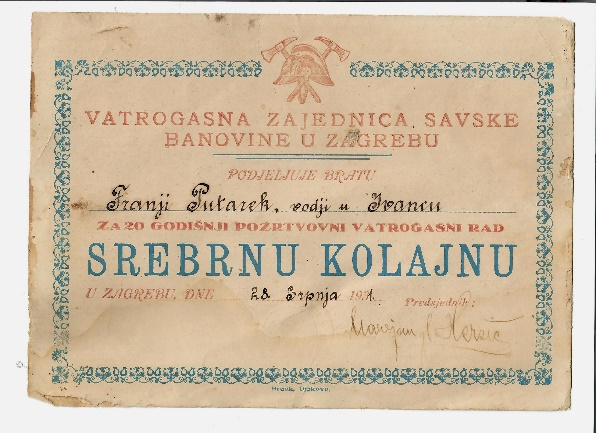 VATROGASNA ZAJEDNICA SAVSKE
BANOVINE U ZAGREBU
PODJELJUJE BRATU
Franji Putarek, vodji u Ivancu
ZA 20 GODIŠNJI POŽRTVOVNI VATROGASNI RAD
SREBRNU KOLAJNU
U ZAGREBU, DNE 28 Srpnja
Predsjednik: